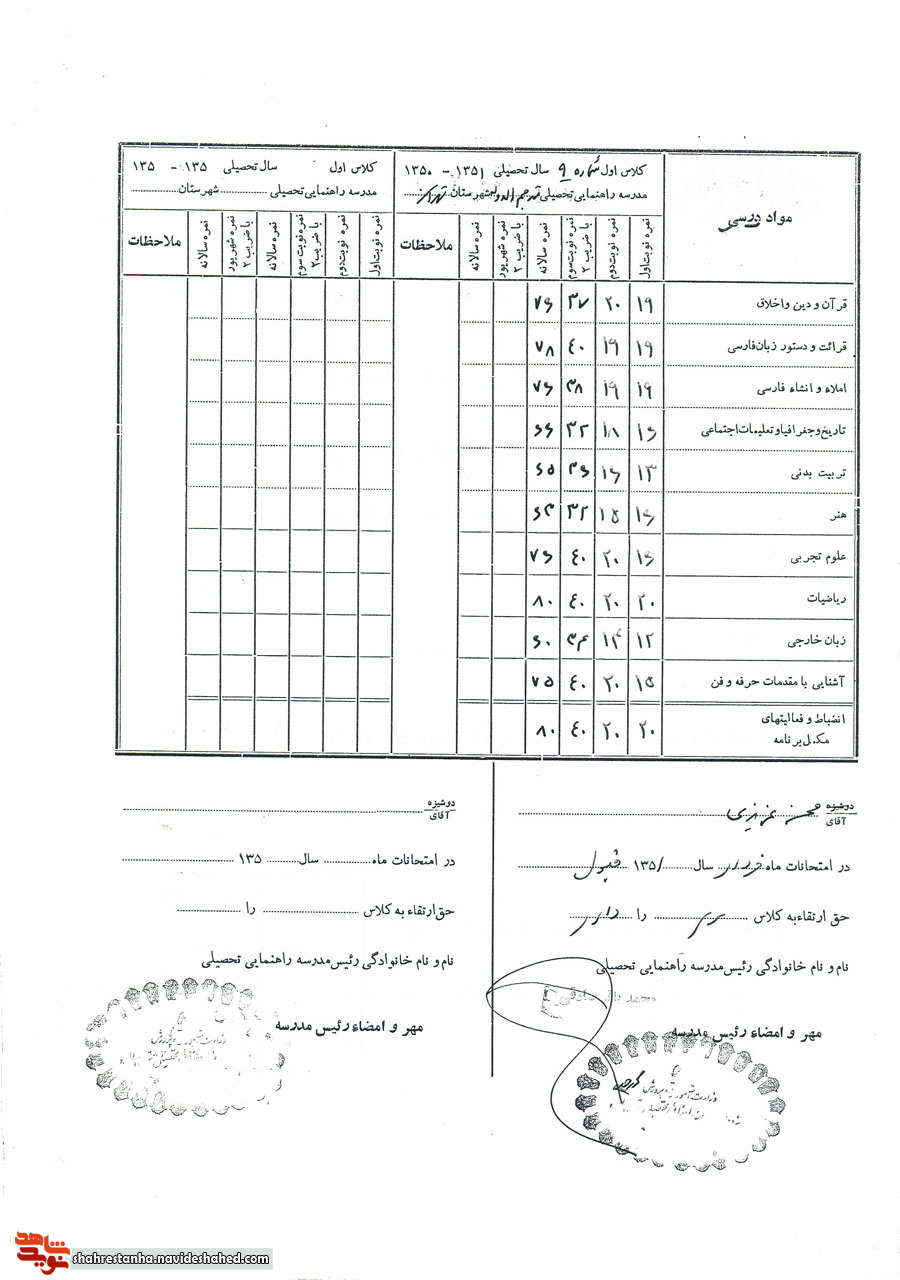 کلاس اول شماره ۹ سال تحصیلی ۱۳۵۱ - ۱۳۵۰
مدرسه راهنمایی تحصیلی مترجم الدوله شهرستان تهران
کلاس اول سال تحصیلی ۱۳۵ - ۱۳۵
مدرسه راهنمایی تحصیلی شهرستان
مواد درسی
نمره نوبت اول
نمره نوبت دوم
نمره نوبت سوم با ضریب ۲
نمره سالانه
نمره شهریور با ضریب ۲
نمره سالانه
ملاحظات
نمره نوبت اول
نمره نوبت دوم
نمره نوبت سوم با ضریب ۲
نمره سالانه
نمره شهریور با ضریب ۲
نمره سالانه
ملاحظات
قرآن و دین و اخلاق ۱۹ ۲۰ ۳۷ ۷۶
قرائت و دستور زبان فارسی ۱۹ ۱۹ ۴۰ ۷۸
املاء و انشاء فارسی ۱۹ ۱۹ ۳۸ ۷۶
تاریخ و جغرافیا و تعلیمات اجتماعی ۱۶ ۱۸ ۳۲ ۶۶
تربیت بدنی ۱۳ ۱۶ ۳۶ ۶۵
هنر ۱۶ ۱۵ ۳۲ ۶۳
علوم تجربی ۱۶ ۲۰ ۴۰ ۷۶
ریاضیات ۲۰ ۲۰ ۴۰ ۸۰
زبان خارجی ۱۲ ۱۴ ۳۴ ۶۰
آشنایی با مقدمات حرفه و فن ۱۵ ۲۰ ۴۰ ۷۵
انضباط و فعالیتهای
مکمل برنامه ۲۰ ۲۰ ۴۰ ۸۰
دوشیزه
آقای محسن عزیزی
در امتحانات ماه خرداد سال ۱۳۵۱ قبول
حق ارتقاء به کلاس را دارد
نام و نام خانوادگی رئیس مدرسه راهنمایی تحصیلی
مهر و امضاء رئیس مدرسه
وزارت آموزش و پرورش
دوشیزه
آقای
در امتحانات ماه سال ۱۳۵
حق ارتقاء به کلاس را
نام و نام خانوادگی رئیس مدرسه راهنمایی تحصیلی
مهر و امضاء رئیس مدرسه
وزارت آموزش و پرورش
نوید شاهد
shahrestanha.navideshahed.com